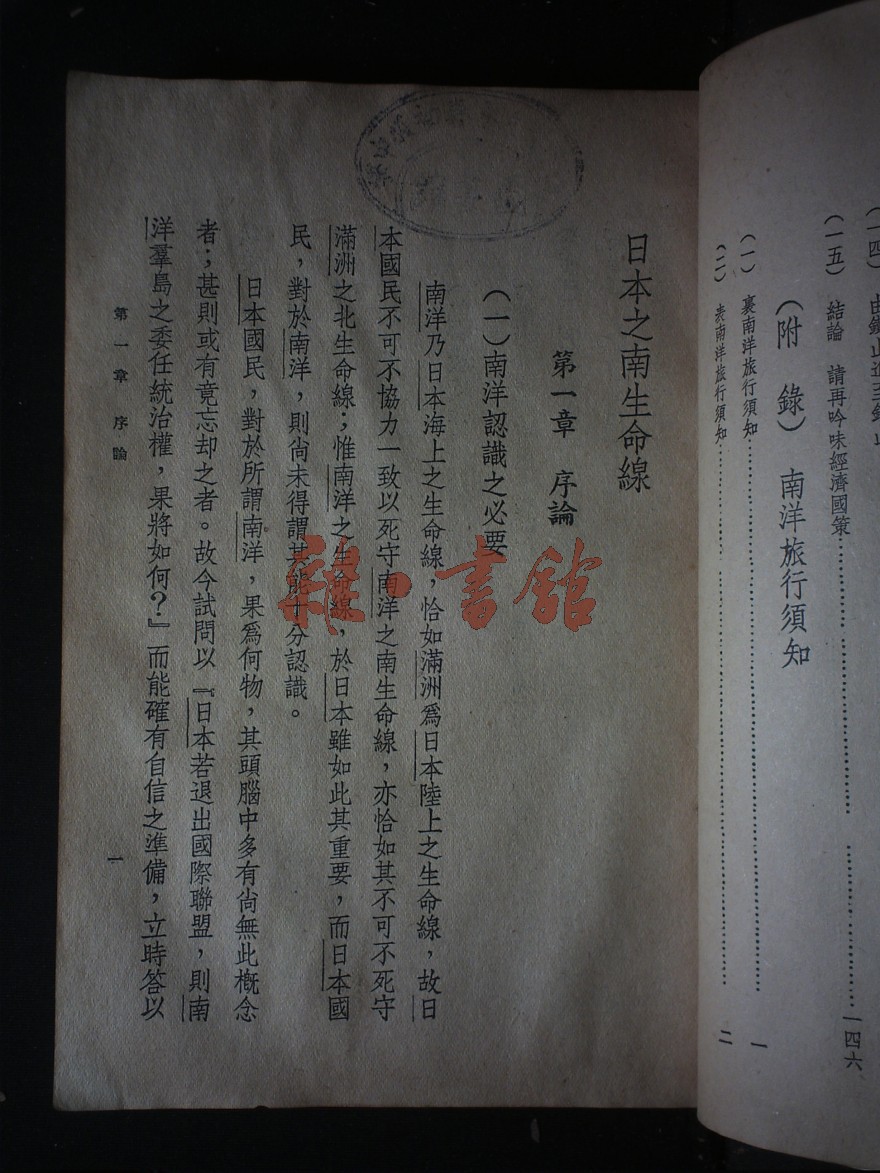 (一五) 結論 請再吟味經濟國策……一四六
(附錄) 南洋旅行須知
(一) 裏南洋旅行須知……一
(二) 表南洋旅行須知……二
日本之南生命線
第一章 序論
(一)南洋認識之必要
南洋乃日本海上之生命線,恰如滿洲爲日本陸上之生命線,故日
本國民不可不協力一致以死守南洋之南生命線,亦恰如其不可不死守
滿洲之北生命線;惟南洋之生命線,於日本雖如此其重要,而日本國
民,對於南洋,則尚未得謂其能十分認識。
日本國民,對於所謂南洋,果爲何物,其頭腦中多有尚無此概念
者;甚則或有竟忘却之者。故今試問以『日本若退出國際聯盟,則南
洋羣島之委任統治權,果將如何?』而能確有自信之準備,立時答以
第一章 序論
一
雜·書館